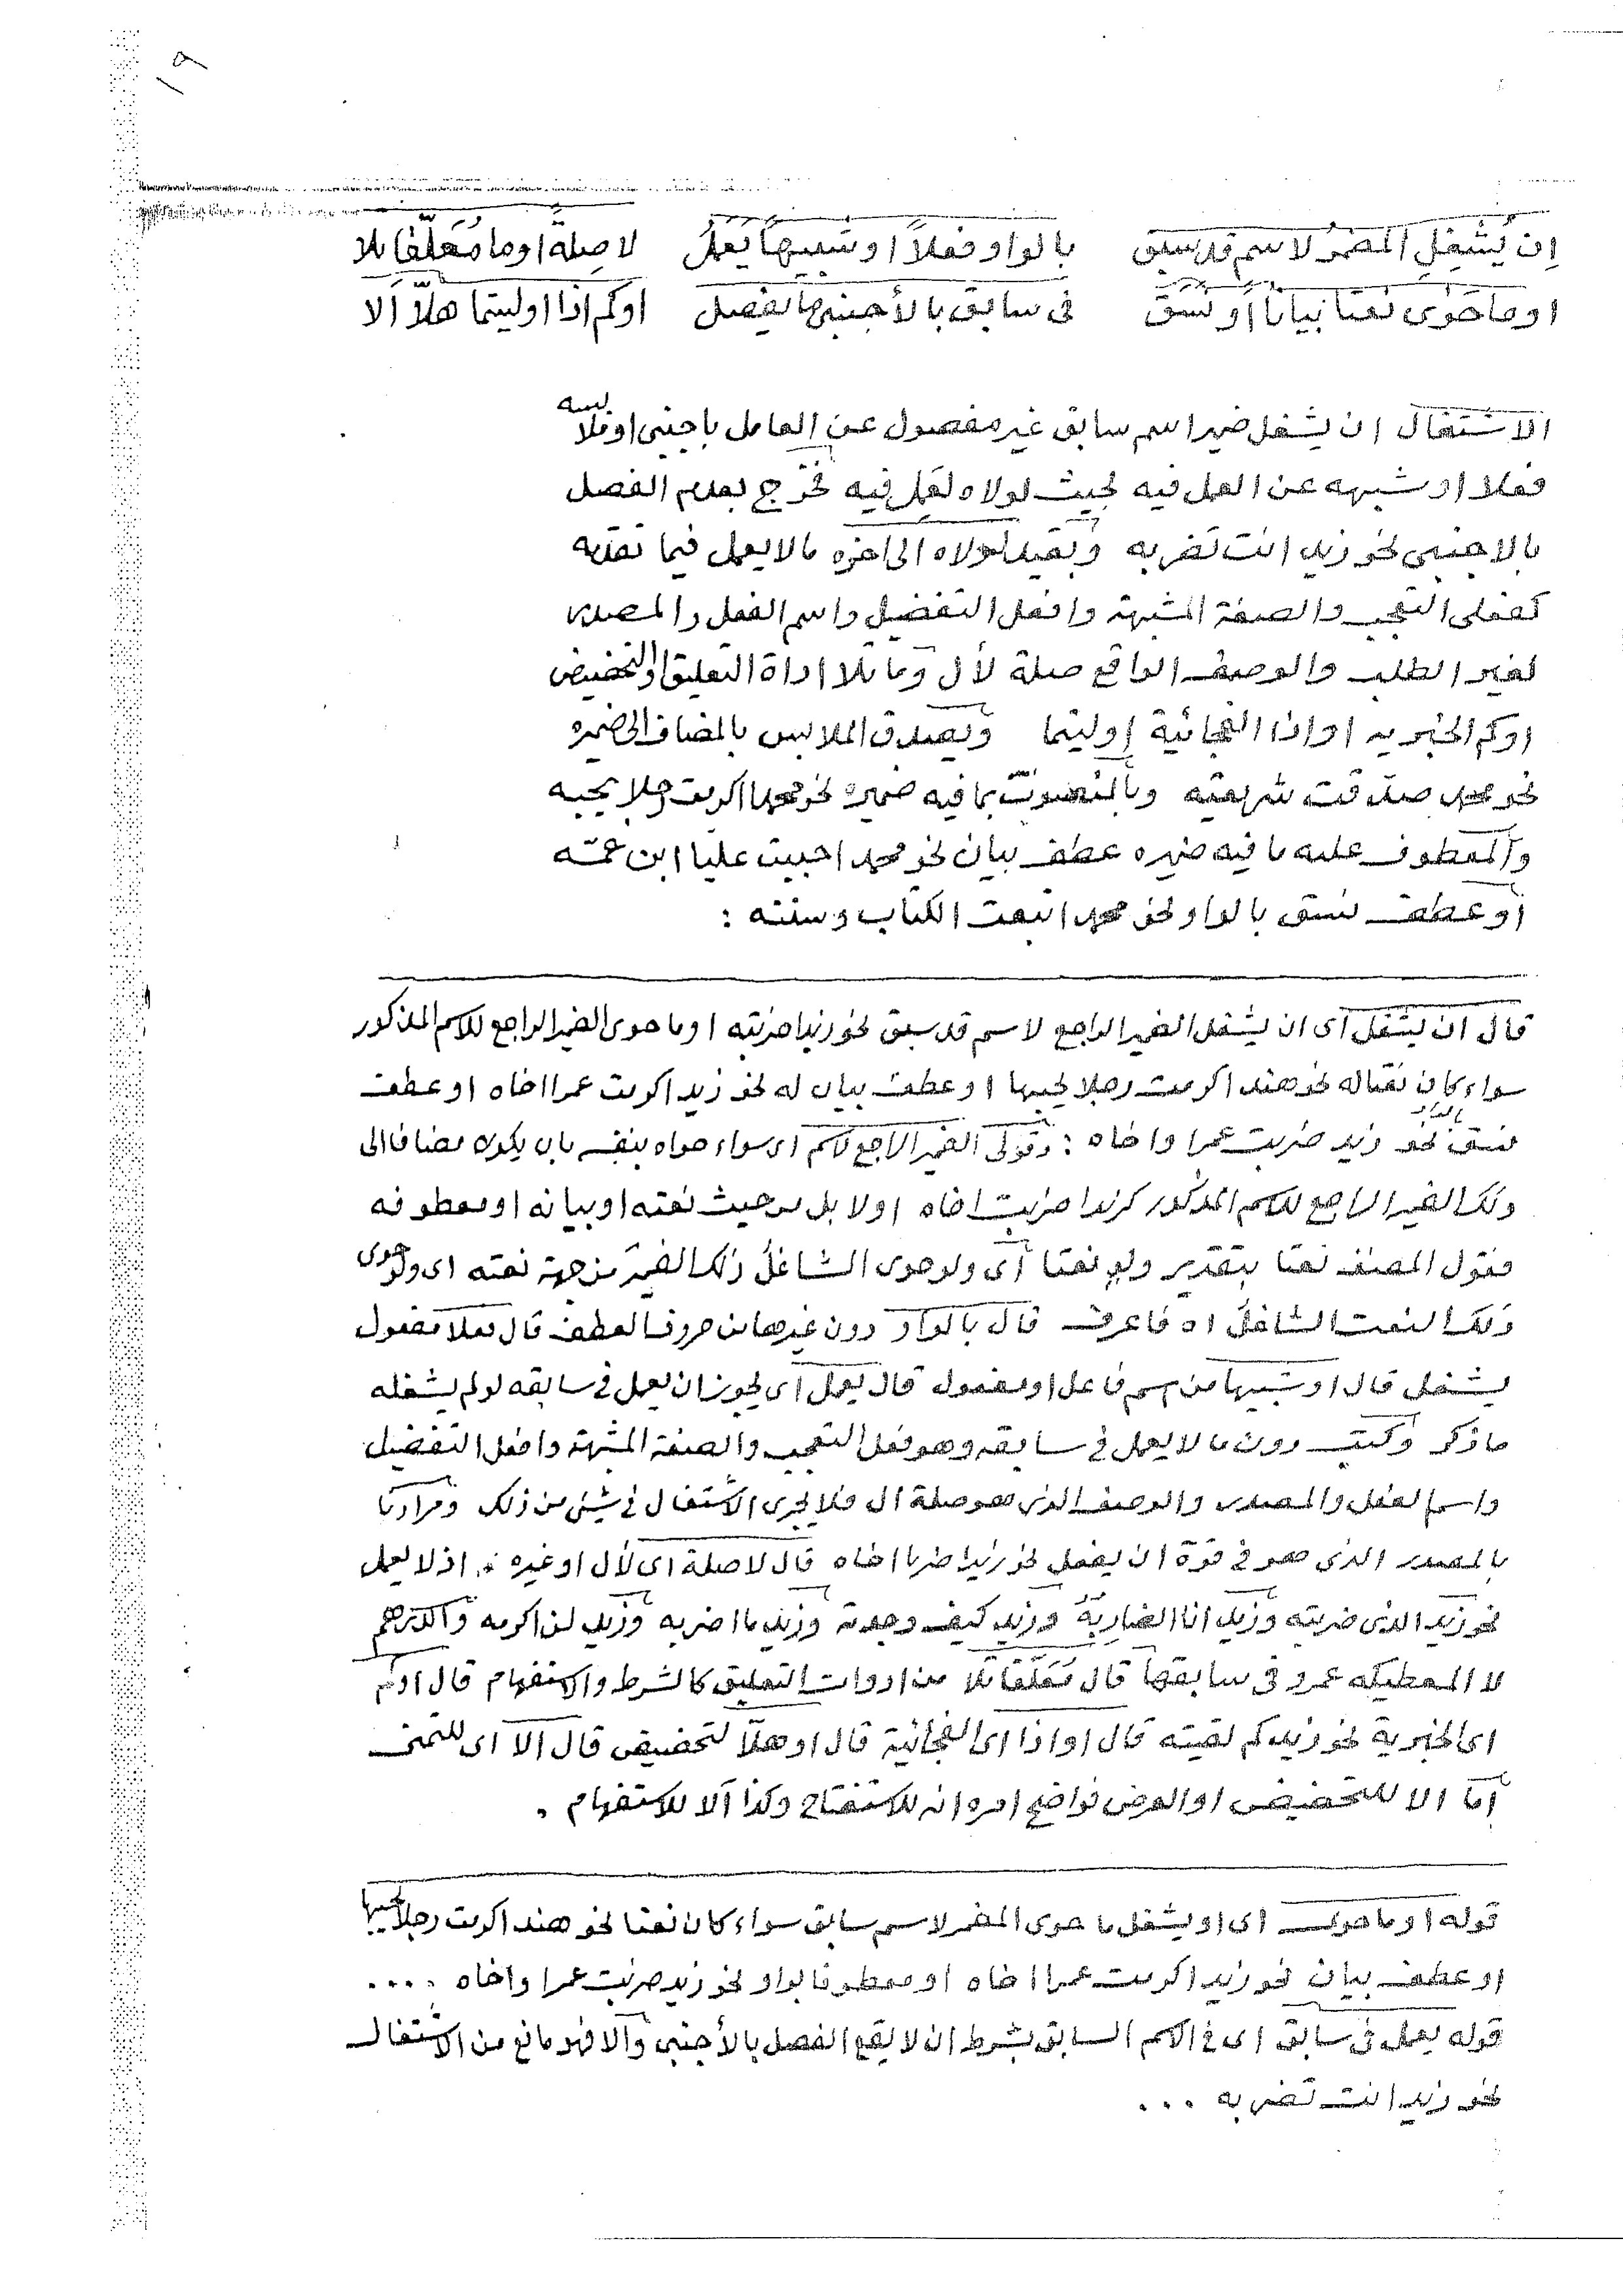 ١٩
إن يُشْغِلِ المضمرُ لاسم قد سبق بالواو فعلاً او شبيهاً يَعمَلُ لا صِلةً او ما مُعَلِّقا تلا
او ما حَوٰى نعتا بيانا أو نَسَق فى سابق بالأجنبى ما يفصل اوكم اذا او ليتما هلاّ ألا
الاشتغال ان يشغل ضمير اسم سابق غير مفصول عن العامل باجنبى او ملابسه
فعلا او شبهه عن العمل فيه بحيث لولاه لعَمِل فيه فخرج بعدم الفصل
بالاجنبى نحو زيد انت تضربه وبقيد لولاه الى اخره مالا يعمل فيما تقدمه
كفعلى التعجب والصفة المشبهة وافعل التفضيل واسم الفعل والمصدر
لغير الطلب والوصف الواقع صلة لأل وما تلا اداة التعليق او التحضيض
اوكم الخبرية او اذا الفجائية او ليتما ويصدق الملابس بالمضاف الى ضميره
نحو محمد صدقت شريعته وبالمنعوت بما فيه ضميره نحو محمدا اكرمت رجلا يحبه
والمعطوف عليه ما فيه ضميره عطف بيان نحو محمدا حببت عليا ابن عمّه
أو عطف نسق بالواو نحو محمدا اتبعت الكتاب وسنته :
قال ان يشغل أى ان يشغل الضمير الراجع لاسم قد سبق نحو زيدا ضربته او ما حوى الضمير الراجع للاسم المذكور
سواء كان نعتا له نحو هندا اكرمت رجلا يحبها او عطف بيان له نحو زيدا كرمت عمرا اخاه او عطف
نسق بالواو نحو زيد ضربت عمرا واخاه : وقولى الضمير الراجع للاسم اى سواء حواه بنفسه بان يكون مضافا الى
ذلك الضمير الراجع للاسم المذكور كزيدا ضربت اخاه اولا بل من حيث نعته او بيانه او معطوفه
فقول المصنف نعتا بتقدير ولو نعتا أى ولو حوى الشاغلُ ذلك الضميرَ من جهة نعته اى ولو حوى
ذلك النعت الشاغلُ اه فاعرف قال بالواو دون غيرها من حروف العطف قال فعلا مفعول
يشغل قال او شبيها من اسم فاعل او مفعول قال يعمل أى يجوز ان يعمل فى سابقه لو لم يشغله
ما ذكر وكتب دون ما لا يعمل فى سابقه وهو فعل التعجب والصفة المشبهة وافعل التفضيل
واسم الفعل والمصدر والوصف الذى هو صلة ال فلا يجرى الاشتغال فى شيئ من ذلك ومرادنا
بالمصدر الذى هو فى قوة ان يفعل نحو زيدا ضربا اخاه قال لا صلة اى لأل او غيره . اذ لا يعمل
نحو زيد الذى ضربته وزيد انا الضاربهُ وزيد كيف وجدته وزيد ما اضربه وزيد لن اكرمه والدرهم
لا المعطيكه عمرو فى سابقها قال مُعَلِّقا تلا من ادوات التعليق كالشرط والاستفهام قال اوكم
اى الخبرية نحو زيد كم لقيته قال او اذا اى الفجائية قال او هلاّ لتحضيض قال الا اى للتمنى
أما الا للتحضيض او العرض فواضح امره انه للاستفتاح وكذا ألا للاستفهام .
قوله او ما حوى اى او يشغل ما حوى المضمر لاسم سابق سواء كان نعتا نحو هندا اكرمت رجلا يحبها
او عطف بيان نحو زيدا كرمت عمرا اخاه او معطوفا بواو نحو زيد ضربت عمرا واخاه ....
قوله يعمل فى سابق اى فى الاسم السابق بشرط ان لا يقع الفصل بالأجنبى والا فهو مانع من الاشتغال
نحو زيد انت تضربه ...